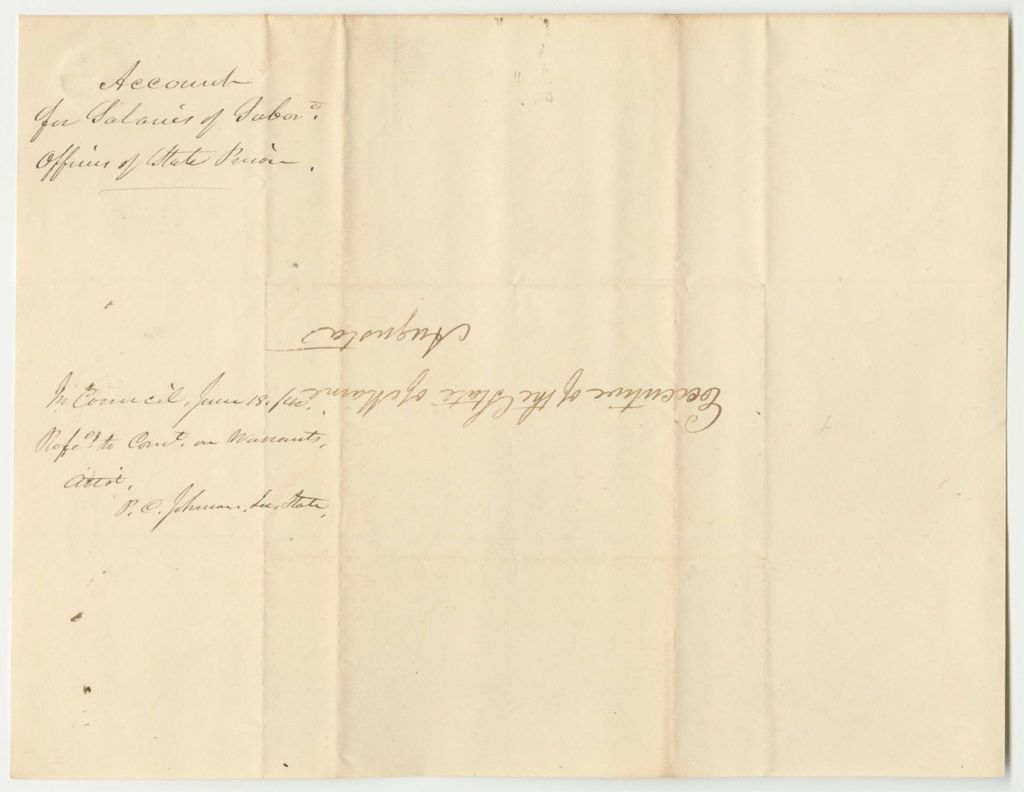 Account
for Salaries of Subord.
Officers of State Prison.
In Council, June 18, 1840.
Refd. to Comt. on Warrants.
Attest,
P. C. Johnson, Sec. State.
Executive of the State of Maine
Augusta